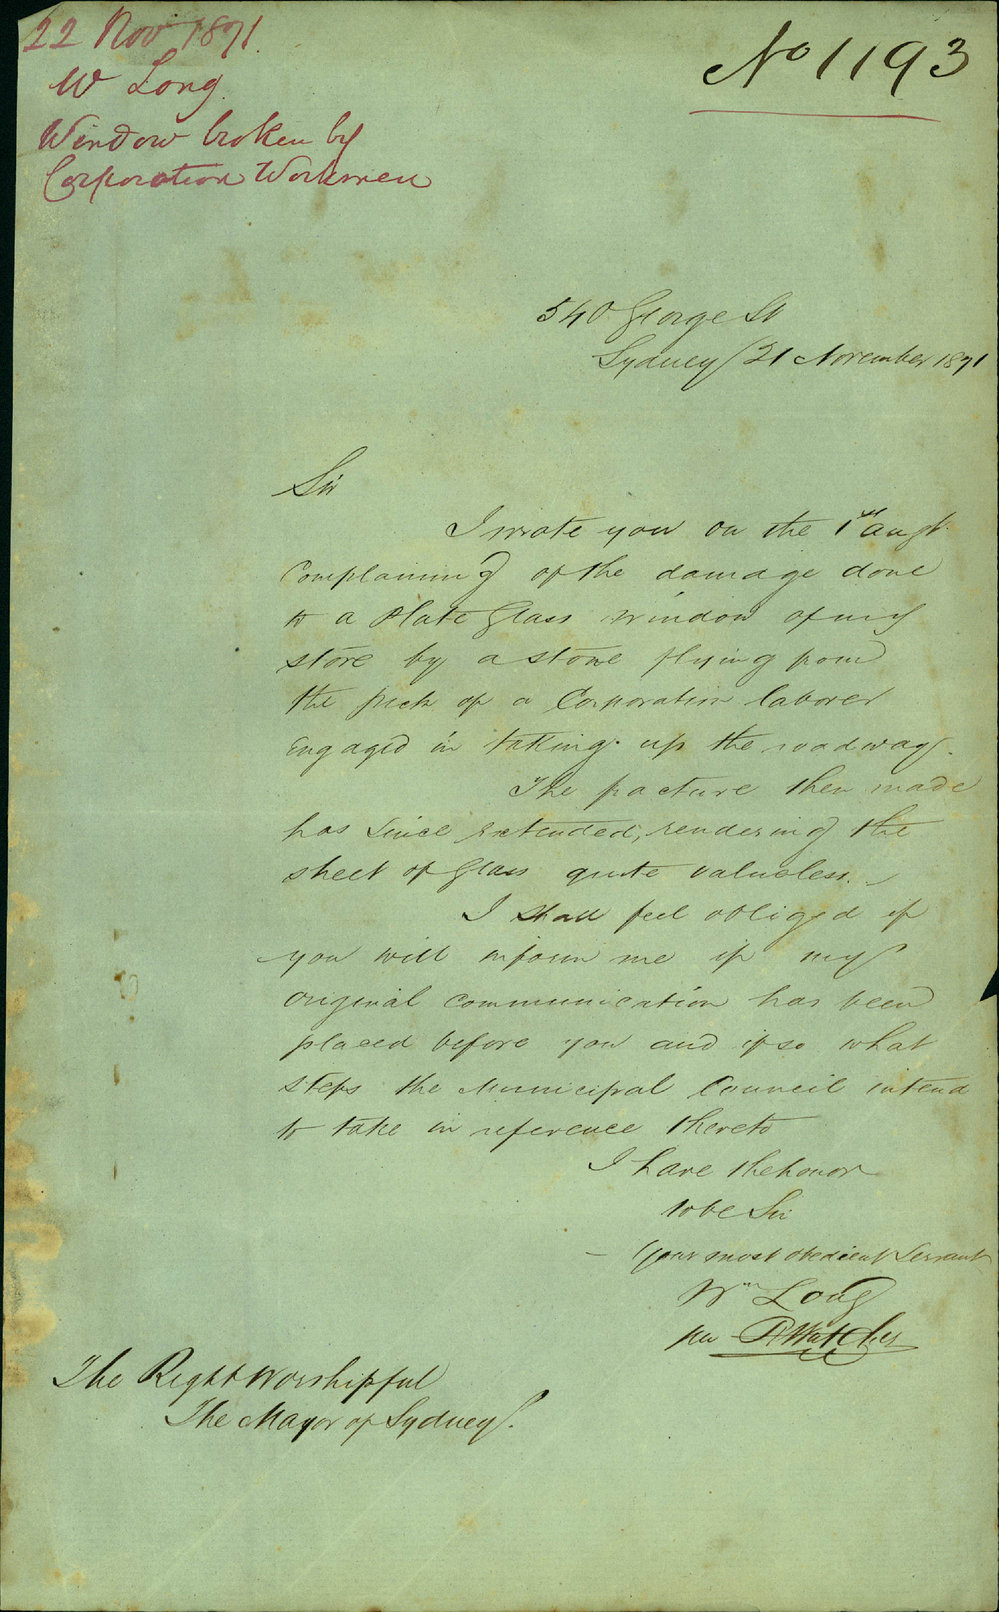 22 Nov 1871.
W Long
Window broken by
Corporation Workmen
No 1193
540 George St
Sydney 21 November 1871
Sir
I wrote you on the 1st augt.
Complaining of the damage done
to a Plate Glass window of my
store by a stone flying from
the pick of a Corporation laborer
engaged in taking up the roadway.
The fracture then made
has since extended, rendering the
sheet of Glass quite valueless.
I shall feel obliged if
you will inform me if my
original communication has been
placed before you and if so what
steps the Municipal Council intend
to take in reference thereto
I have the honor
to be Sir
Your most obedient Servant
Wm Long
per
The Right Worshipful
The Mayor of Sydney.